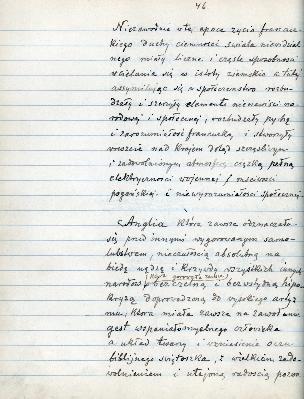 46
Niezawodnie w tej epoce życia francus-
kiego duchy ciemności świata niewidzial-
nego miały liczne i częste sposobności
wcielania się w istoty ziemskie a tutaj
assymilując się w społeczeństwo rozbu-
dziły i szerzyły elementa nienawiści na-
rodowej i społecznej, rozbudziły pychę
i zarozumiałość francuzką, i stworzyły
wreszcie nad krajem dotąd szczęśliwym
i zadowolnionym atmosferę ciężką pełną
elektryczności wojennej / mściwości
pogańskiej i niewyrozumiałości społecznej.
Anglia która zawsze odznaczała
się przed innymi wygórowanym samo-
lubstwem, nieczułością absolutną na
biedę nędzę i krzywdę wszystkich innych
narodów bezczelną i bezwstydną hipo-
kryzą doprowadzoną do wysokiego arty-
zmu, która miała zawsze na zawołanie
gest wspaniałomyślnego człowieka
a układ twarzy i wzniesienie oczu
biblijnego świętoszka, z wielkiem zado-
wolnieniem i utajoną radością